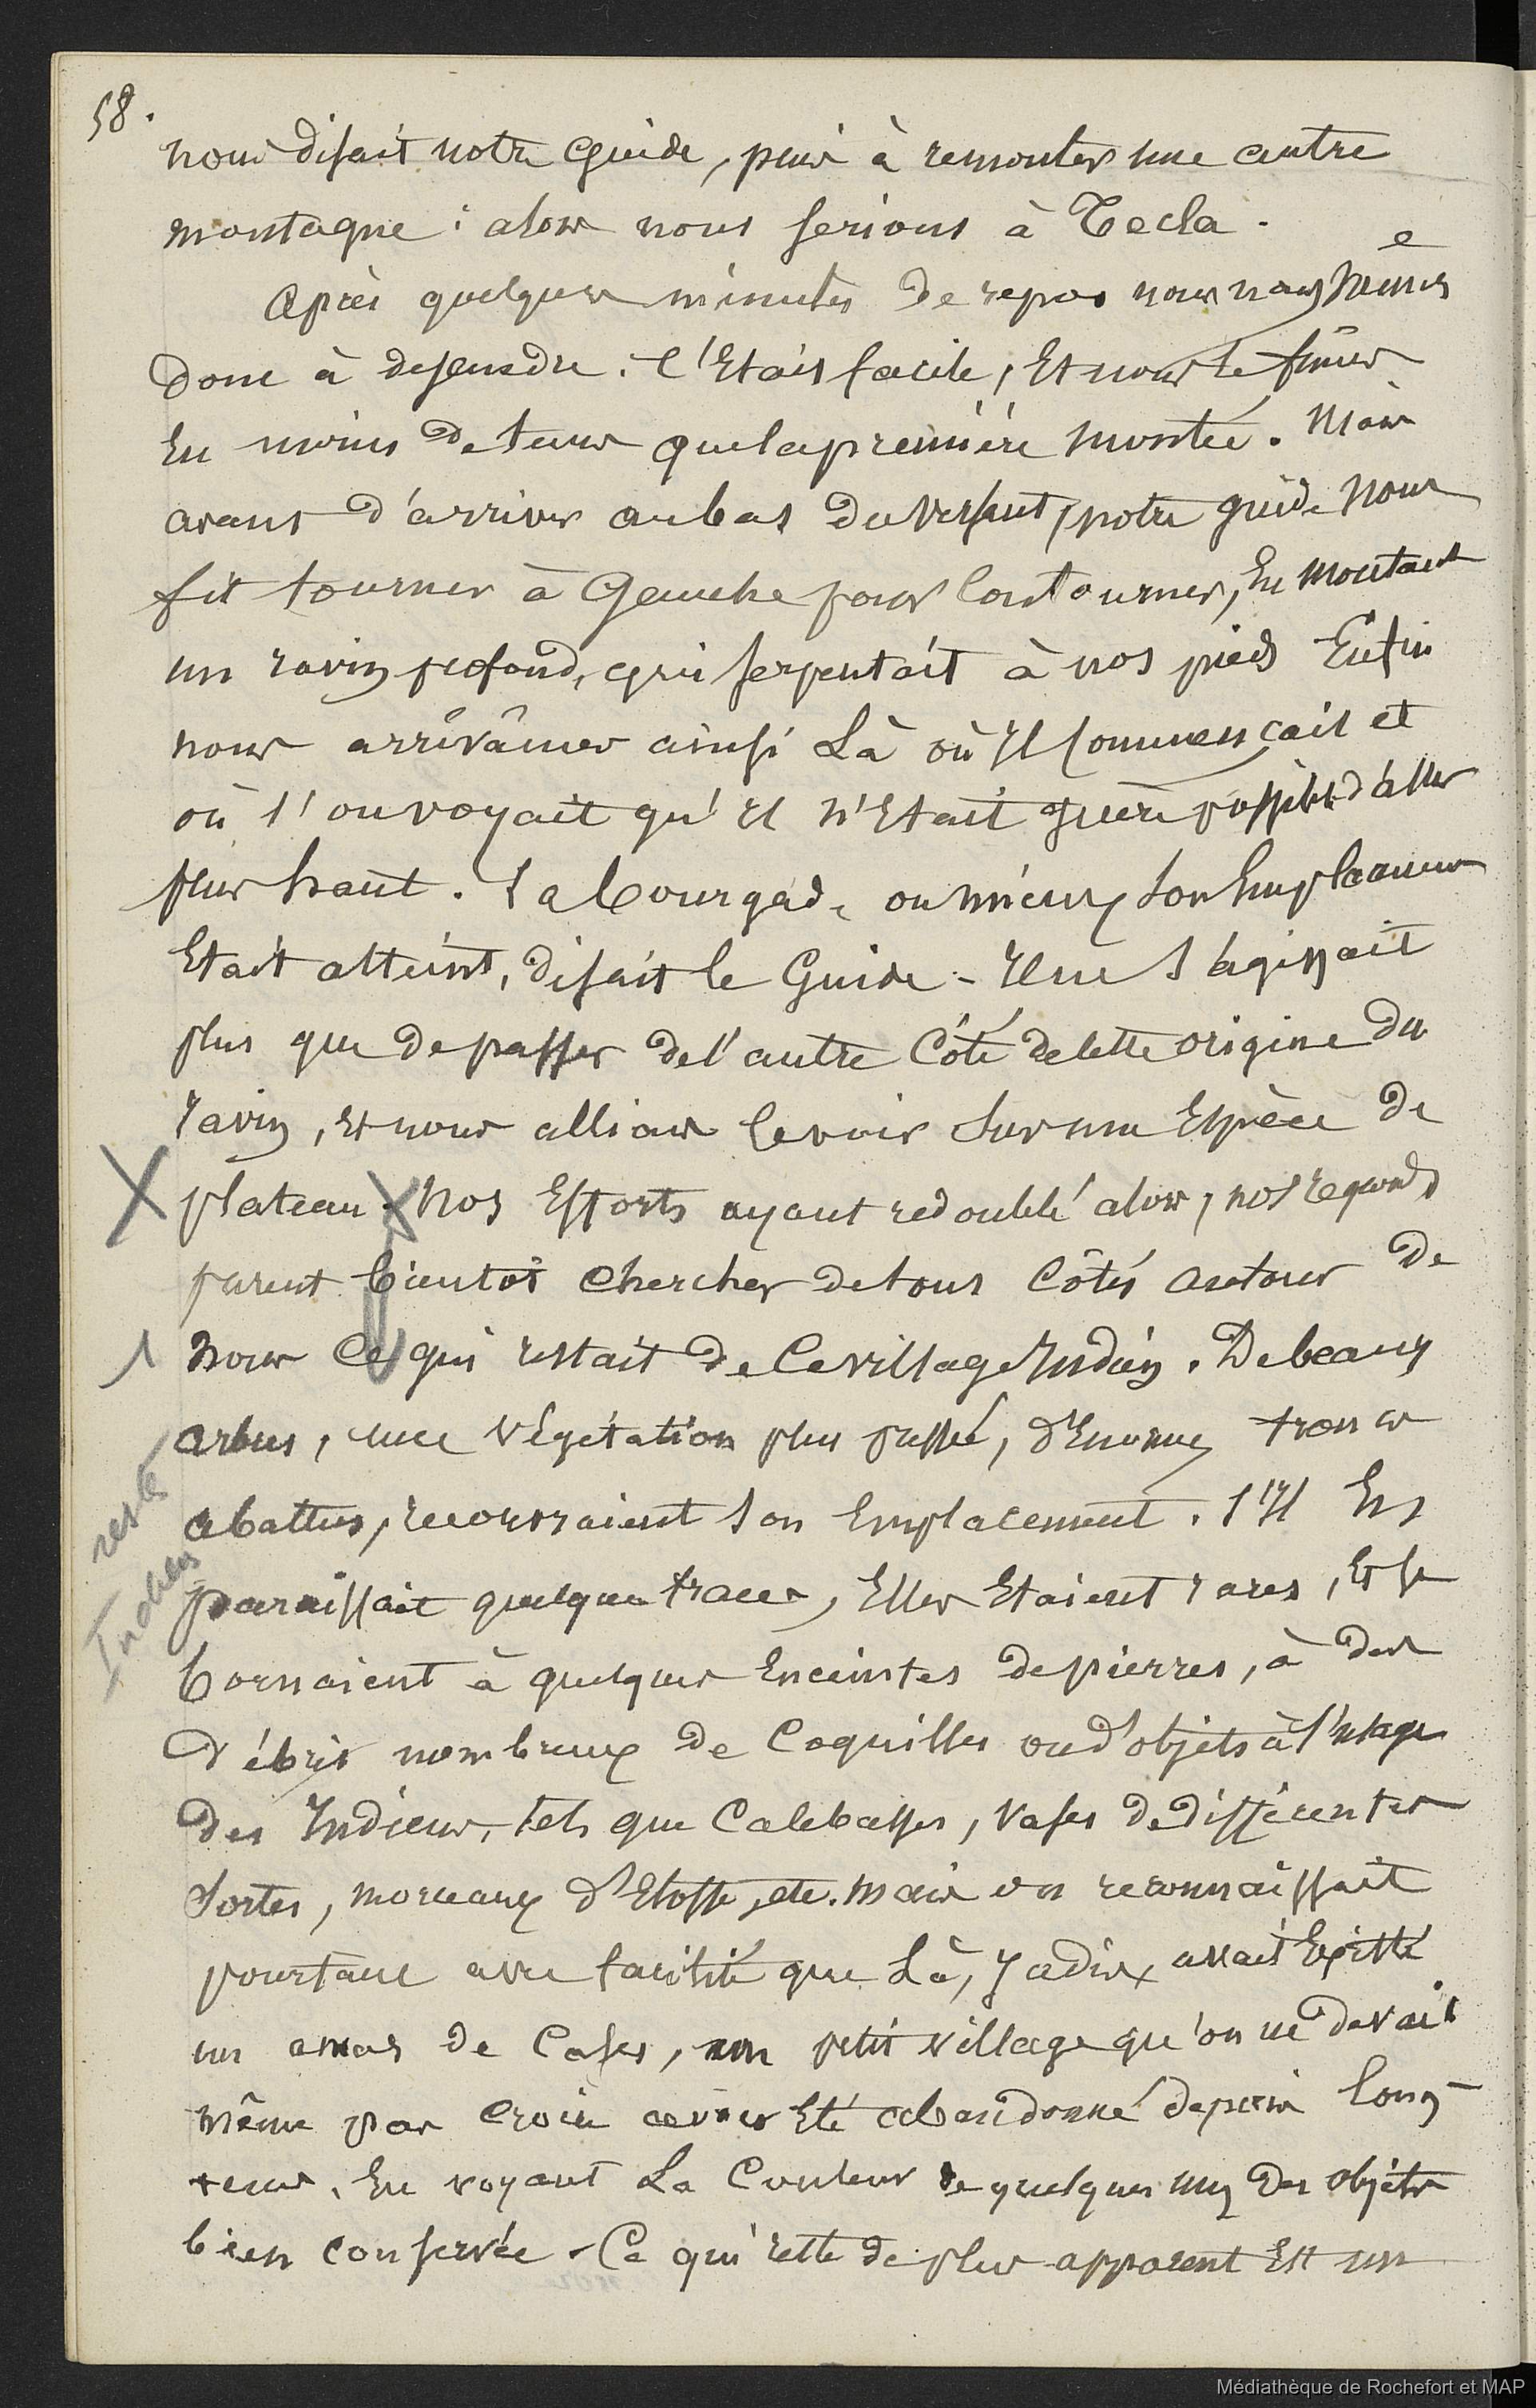 58.
nous disait notre guide, puis à remonter une autre
montagne : alors nous serions à Tecla.
Après quelques minutes de repos nous nous mîmes
donc à descendre. C'était facile, Et nous le fîmes
En moins de tems que la première montée. Mais
avant d'arriver au bas du versant, notre guide nous
fit tourner à Gauche pour contourner, En montant
un ravin profond, qui serpentait à nos pieds Enfin
nous arrivâmes ainsi Là où Il commençait et
où l'on voyait qu'Il n'Etait guère possible d'aller
plus haut. La bourgade, ou mieux son Emplacement
Etait atteint, disait le Guide - Il ne s'agissait
plus que de passer de l'autre Côté de cette origine du
ravin, Et nous allions le voir sur une Espèce de
plateau. Nos Efforts ayant redoublé alors, nos regards
purent bientôt chercher de tous Côtés autour de
nous Ce qui restait de Ce village Indien. De beaux
arbres, une végétation plus pressée, d'Enormes troncs
abattus, recouvraient son Emplacement. S'Il En
paraissait quelques traces, Elles Etaient rares, Et se
bornaient à quelques Enceintes de pierres, à des
débris nombreux de Coquilles ou d'objets à l'usage
des Indiens, tels que Calebasses, vases de différentes
Sortes, morceaux d'Etoffe, etc. mais on reconnaissait
pourtant avec facilité que Là, Jadis, avait Existé
un amas de Cases, un petit village qu'on ne devait
même pas croire avoir Eté abandonné depuis long-
tems, En voyant La Couleur de quelques uns des objets
bien conservée. Ce qui reste de plus apparent Est un
reste
Indien
Médiathèque de Rochefort et MAP